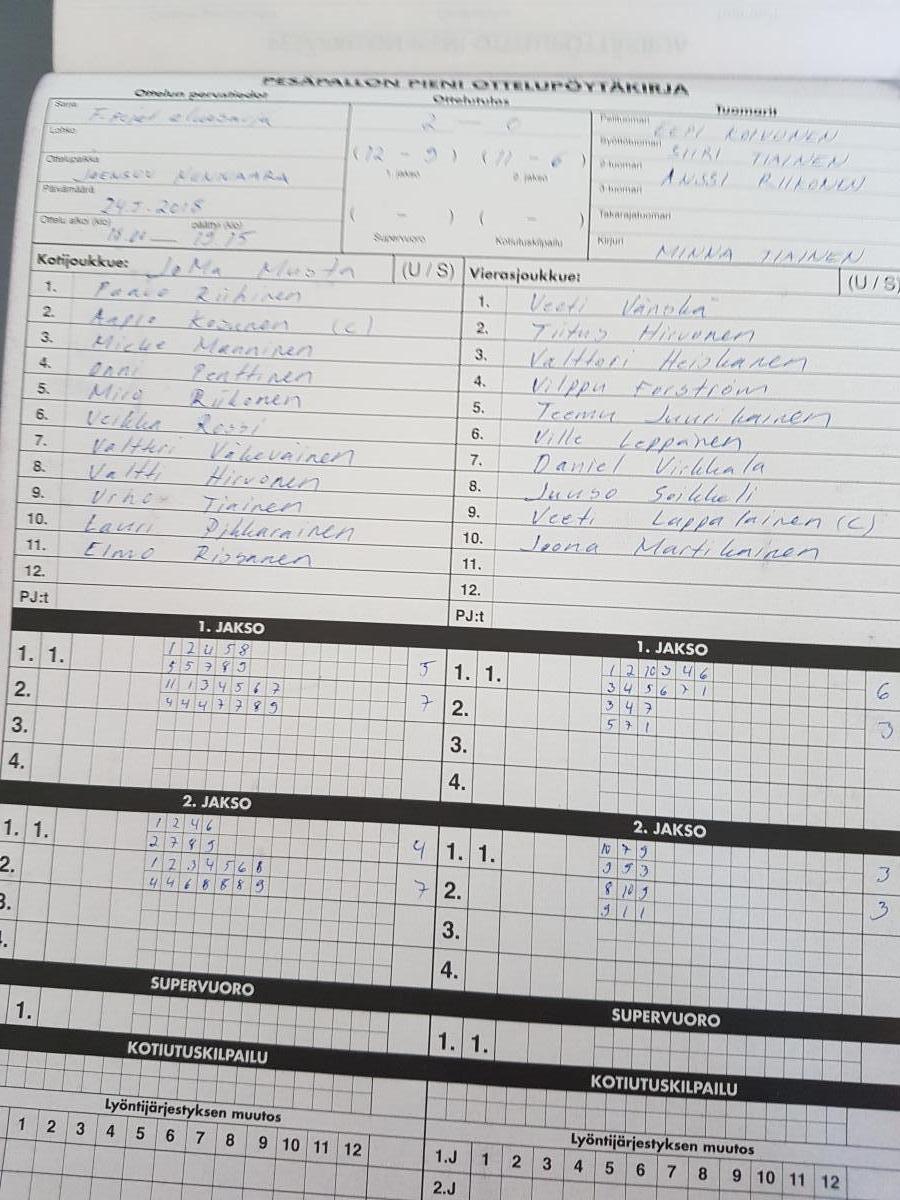 PESÄPALLON PIENI OTTELUPÖYTÄKIRJA
Ottelun perustiedot
Sarja
F-pojat aluesarja
Lohko
Ottelupaikka
JOENSUU
Päivämäärä
24.5.2018
Ottelu alkoi (klo)
18.00 —
päättyi (klo)
19.15
Ottelutulos
2 – 0
(12 – 9) (11 – 6)
1. jakso 2. jakso
( – ) ( – )
Supervuoro Kotiutuskilpailu
Tuomarit
Pelituomari
EEPI KOIVUNEN
Syöttötuomari
SIIRI TIAINEN
2-tuomari
ANSSI RIIKONEN
3-tuomari
Takarajatuomari
Kirjuri
MINNA TIAINEN
Kotijoukkue: JoMa Musta (U / S)
1. Paavo Riihinen
2. Aapo Kosunen (c)
3. Micke Manninen
4. Onni Penttinen
5. Miro Riikonen
6. Veikka Rossi
7. Valtteri Väkeväinen
8. Valtti Hirvonen
9. Urho Tiainen
10. Lauri Pikkarainen
11. Elmo Rissanen
12.
PJ:t
Vierasjoukkue: (U / S)
1. Veeti Vänskä
2. Tiitus Hirvonen
3. Valtteri Heiskanen
4. Vilppu Forström
5. Teemu Juurikainen
6. Ville Leppänen
7. Daniel Virkkala
8. Juuso Seikkeli
9. Veeti Lappalainen (c)
10. Joona Martikainen
11.
12.
PJ:t
1. JAKSO
1. 1. 1 2 4 5 8
5 5 7 8 9 5
2. 11 1 3 4 5 6 7
4 4 4 7 7 8 9 7
3.
4.
1. JAKSO
1. 1. 1 2 10 3 4 6
3 4 5 6 7 1 6
2. 3 4 7
5 7 1 3
3.
4.
2. JAKSO
1. 1. 1 2 4 6
2 7 8 9 4
2. 1 2 3 4 5 6 8
4 4 6 8 8 8 9 7
3.
2. JAKSO
1. 1. 10 7 9
9 9 3 3
2. 8 10 9
9 1 1 3
3.
4.
SUPERVUORO
1.
SUPERVUORO
1. 1.
KOTIUTUSKILPAILU
KOTIUTUSKILPAILU
Lyöntijärjestyksen muutos
1 2 3 4 5 6 7 8 9 10 11 12
Lyöntijärjestyksen muutos
1.J 1 2 3 4 5 6 7 8 9 10 11 12
2.J